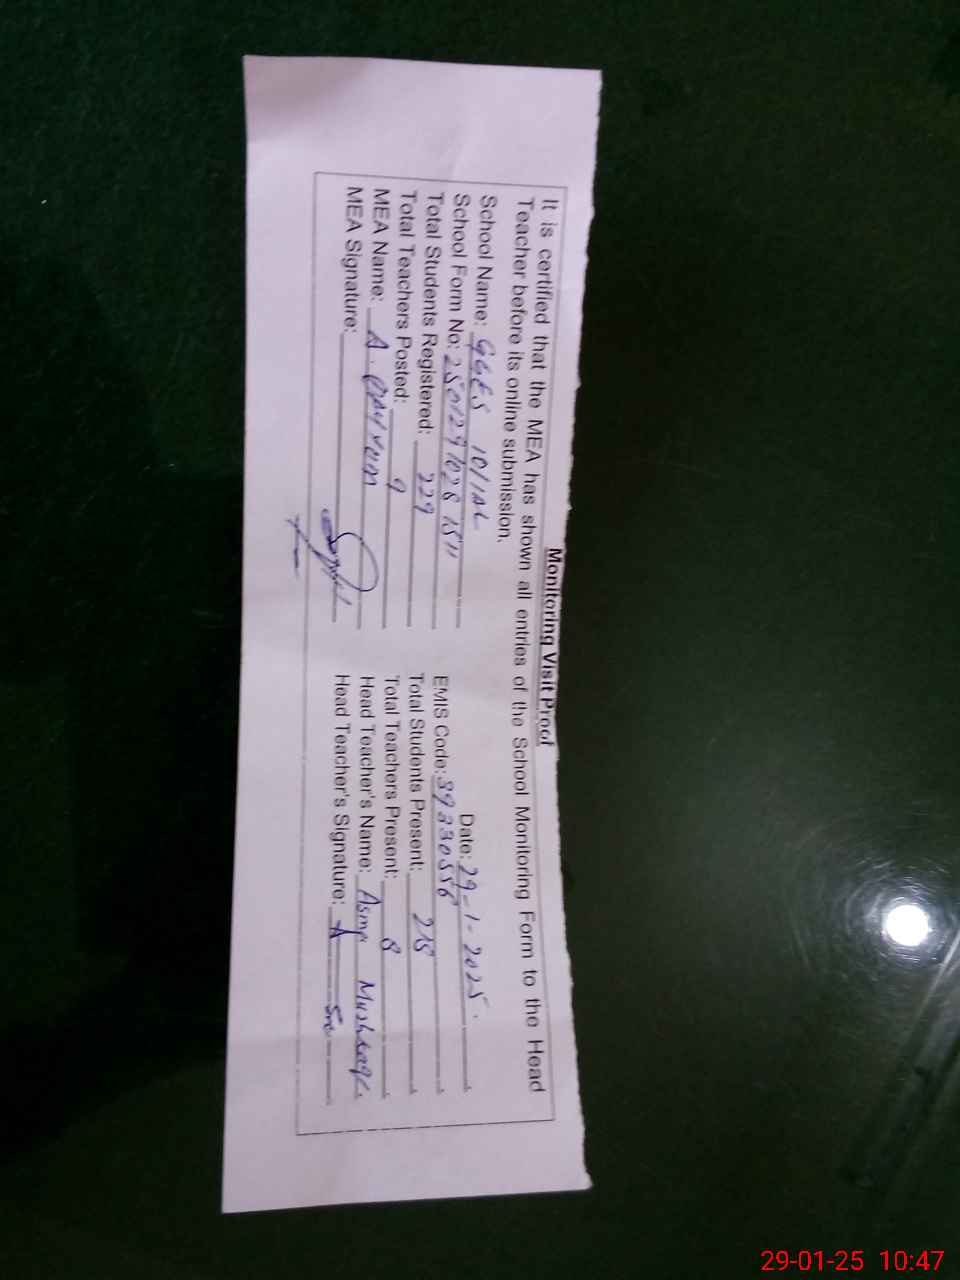 Monitoring Visit Proof
It is certified that the MEA has shown all entries of the School Monitoring Form to the Head
Teacher before its online submission.
Date: 29-1-2025.
School Name: GGES 10/1AL
EMIS Code: 39330556
School Form No: 25012910281511
Total Students Present: 218
Total Students Registered: 229
Total Teachers Present: 8
Total Teachers Posted: 9
Head Teacher's Name: Asma Mushtaq
MEA Name: A. Qayyum
Head Teacher's Signature:
MEA Signature:
29-01-25 10:47